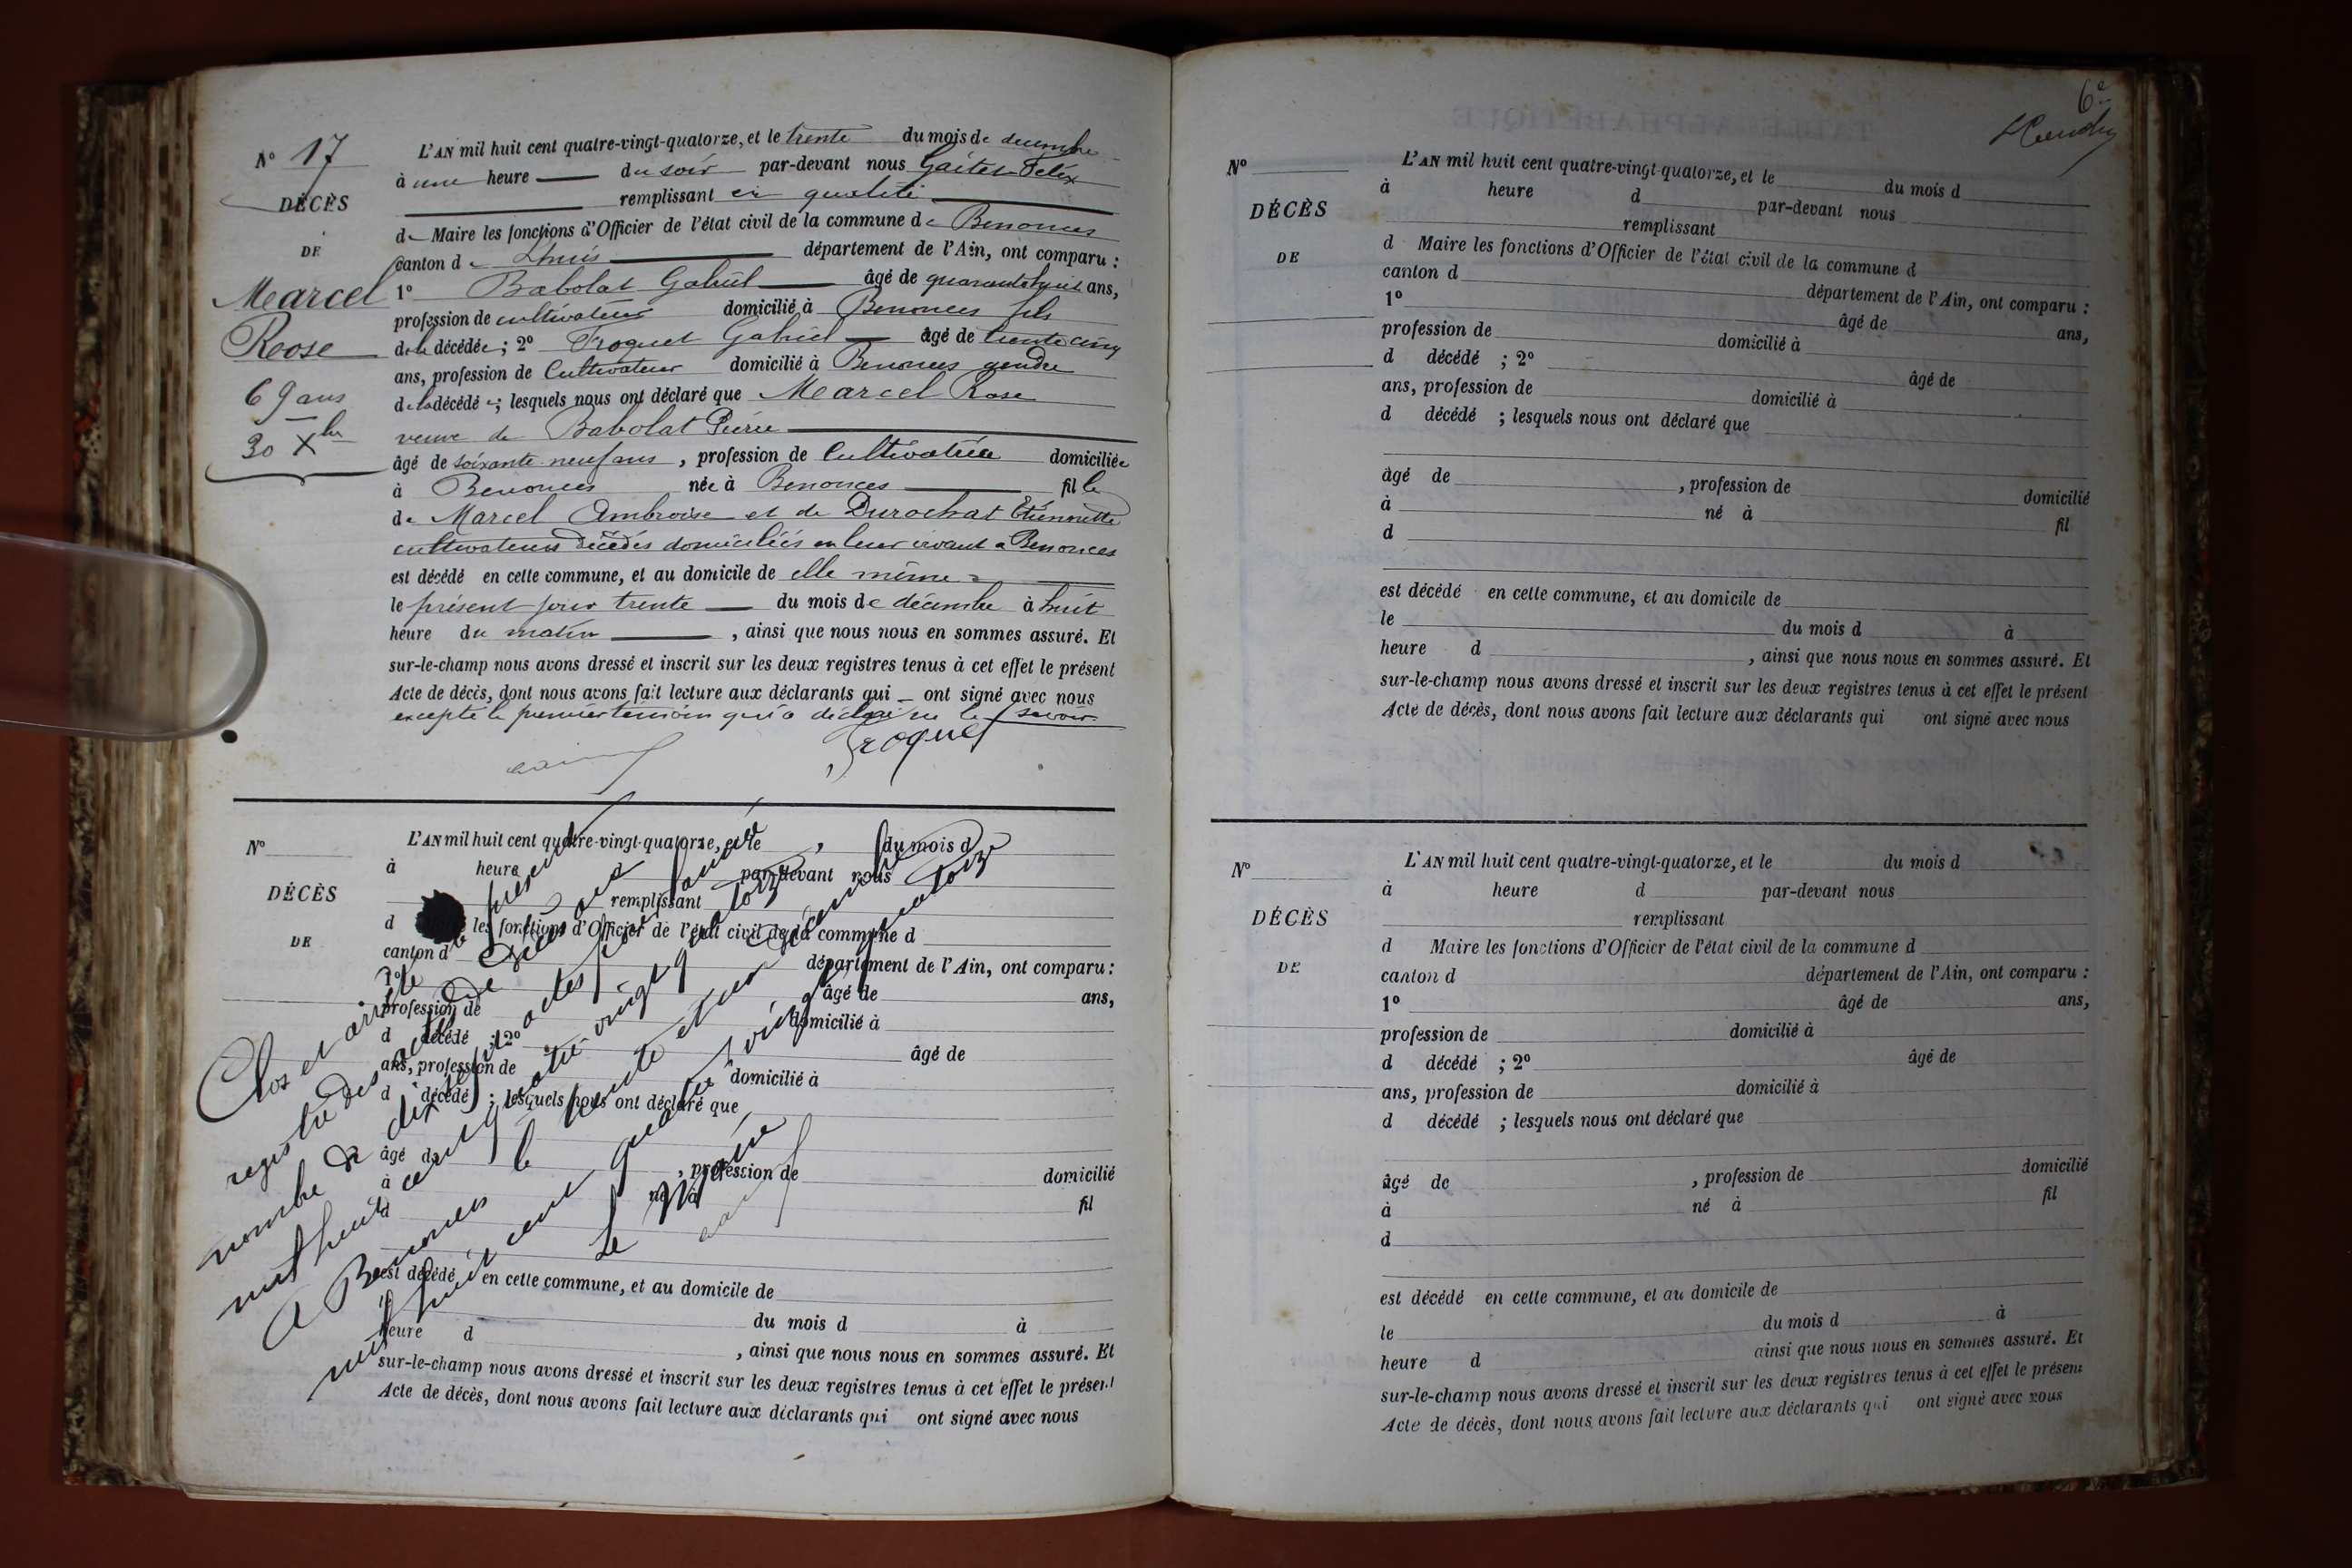 N° 17
DÉCÈS
DE
Marcel
Roose
69 ans
30 Xbre
L'AN mil huit cent quatre-vingt-quatorze, et le trente du mois de decembre
à une heure du soir par-devant nous Gaitet Félix
remplissant en qualité
de Maire les fonctions d'Officier de l'état civil de la commune de Benonces
canton de Lhuis département de l'Ain, ont comparu :
1° Babolat Gabriel âgé de quarante huit ans,
profession de cultivateur domicilié à Benonces fils
de la décédée ; 2° Troquet Gabriel âgé de trente cinq
ans, profession de Cultivateur domicilié à Benonces gendre
de la décédée ; lesquels nous ont déclaré que Marcel Rose
veuve de Babolat Pierre
âgé de soixante neuf ans , profession de Cultivatrice domiciliée
à Benonces née à Benonces fille
de Marcel Ambroise et de Durochat Etiennette
cultivateurs décédés domiciliés en leur vivant a Benonces
est décédé en cette commune, et au domicile de elle même
le présent jour trente du mois de décembre à huit
heure du matin , ainsi que nous nous en sommes assuré. Et
sur-le-champ nous avons dressé et inscrit sur les deux registres tenus à cet effet le présent
Acte de décès, dont nous avons fait lecture aux déclarants qui ont signé avec nous
excepté le premier temoin qui a déclaré ne le savoir.
Troquet
N°
DÉCÈS
DE
L'AN mil huit cent quatre-vingt-quatorze, et le du mois d
à heure par-devant nous
remplissant
d les fonctions d'Officier de l'état civil de la commune d
canton d département de l'Ain, ont comparu :
1° âgé de ans,
profession de domicilié à
d décédé ; 2° âgé de
ans, profession de domicilié à
d décédé ; lesquels nous ont déclaré que
âgé de , profession de domicilié
à né à fil
d
est décédé en cette commune, et au domicile de
le du mois d à
heure d , ainsi que nous nous en sommes assuré. Et
sur-le-champ nous avons dressé et inscrit sur les deux registres tenus à cet effet le présent
Acte de décès, dont nous avons fait lecture aux déclarants qui ont signé avec nous
Clos et arrêté le présent
registre des actes de décès au
nombre de dix sept actes pour l'année
mil huit cent quatre vingt quatorze
A Benonces le trente et un décembre
mil huit cent quatre vingt quatorze
Le Maire
6e
N°
DÉCÈS
DE
L'AN mil huit cent quatre-vingt-quatorze, et le du mois d
à heure d par-devant nous
remplissant
d Maire les fonctions d'Officier de l'état civil de la commune d
canton d département de l'Ain, ont comparu :
1° âgé de ans,
profession de domicilié à
d décédé ; 2° âgé de
ans, profession de domicilié à
d décédé ; lesquels nous ont déclaré que
âgé de , profession de domicilié
à né à fil
d
est décédé en cette commune, et au domicile de
le du mois d à
heure d , ainsi que nous nous en sommes assuré. Et
sur-le-champ nous avons dressé et inscrit sur les deux registres tenus à cet effet le présent
Acte de décès, dont nous avons fait lecture aux déclarants qui ont signé avec nous
N°
DÉCÈS
DE
L'AN mil huit cent quatre-vingt-quatorze, et le du mois d
à heure d par-devant nous
remplissant
d Maire les fonctions d'Officier de l'état civil de la commune d
canton d département de l'Ain, ont comparu :
1° âgé de ans,
profession de domicilié à
d décédé ; 2° âgé de
ans, profession de domicilié à
d décédé ; lesquels nous ont déclaré que
âgé de , profession de domicilié
à né à fil
d
est décédé en cette commune, et au domicile de
le du mois d à
heure d ainsi que nous nous en sommes assuré. Et
sur-le-champ nous avons dressé et inscrit sur les deux registres tenus à cet effet le présent
Acte de décès, dont nous avons fait lecture aux déclarants qui ont signé avec nous